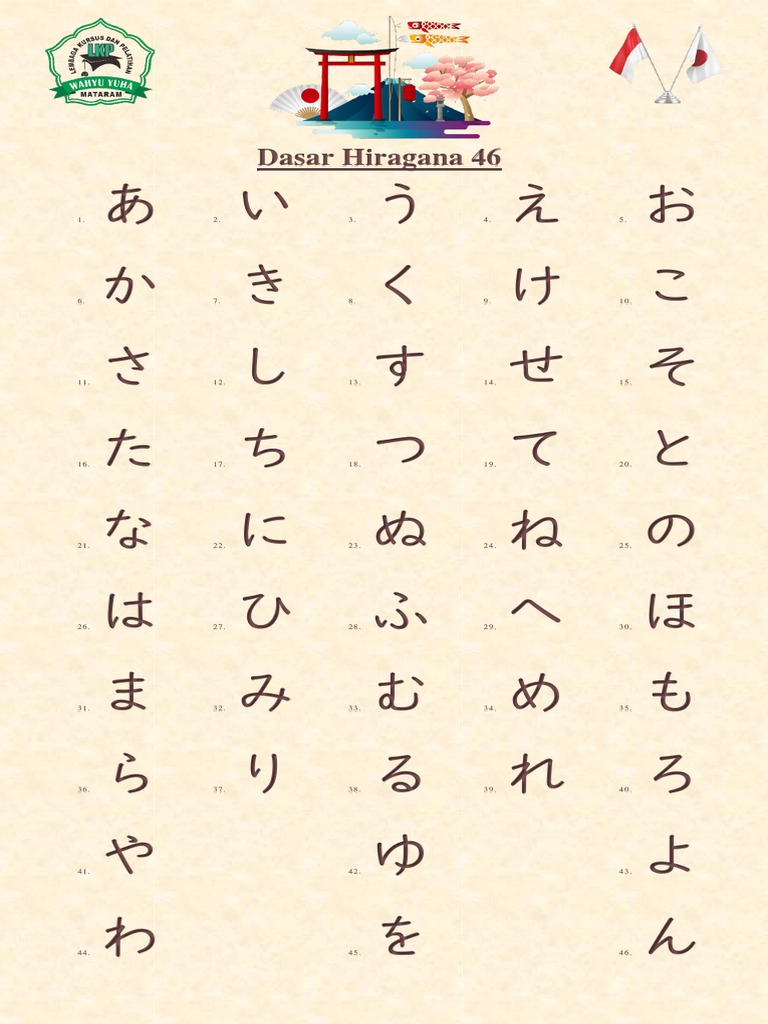 LEMBAGA KURSUS DAN PELATIHAN
LKP
WAHYU YUHA
MATARAM
Dasar Hiragana 46
1. あ 2. い 3. う 4. え 5. お
6. か 7. き 8. く 9. け 10. こ
11. さ 12. し 13. す 14. せ 15. そ
16. た 17. ち 18. つ 19. て 20. と
21. な 22. に 23. ぬ 24. ね 25. の
26. は 27. ひ 28. ふ 29. へ 30. ほ
31. ま 32. み 33. む 34. め 35. も
36. ら 37. り 38. る 39. れ 40. ろ
41. や 42. ゆ 43. よ
44. わ 45. を 46. ん